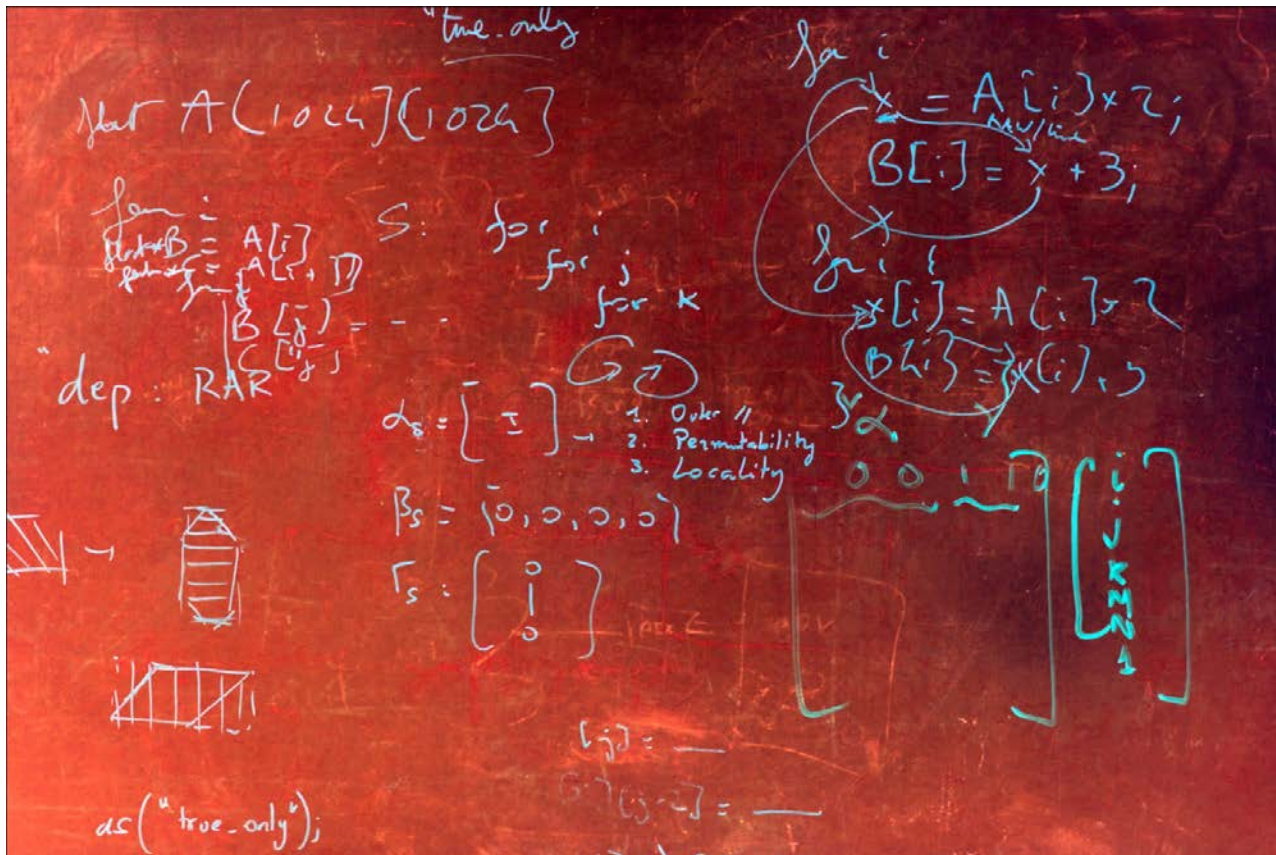 "true_only
float A[1024][1024]
for i
= A[i]
= A[i+1]
B[j] = - -
C[j]
"dep: RAR
S: for i
for j
for k
αs = [ I ] →
1. Outer //
2. Permutability
3. Locality
βs = [0, 0, 0, 0]
Γs : [ 0 | 0 ]
[j] = __
[j-i] = __
as("true_only");
for i
x = A[i] × 2;
B[i] = x + 3;
for i {
x[i] = A[i] × 2
B[i] = x[i] + 3
}
α
0 0 1 1 0
i
J
K
M
N
1